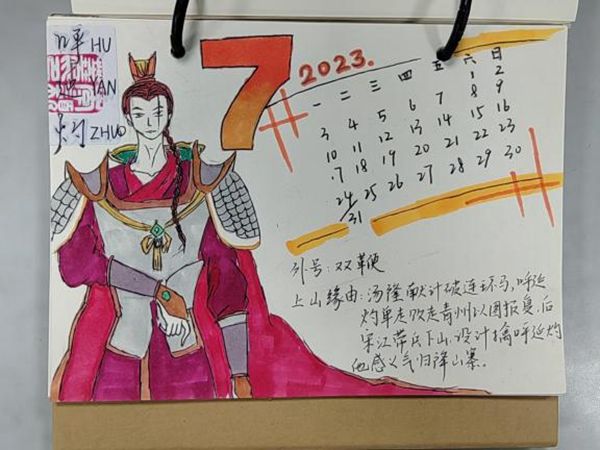 呼 HU
延 YAN
灼 ZHUO
7
2023.
一 二 三 四 五 六 日
1 2
3 4 5 6 7 8 9
10 11 12 13 14 15 16
17 18 19 20 21 22 23
24 25 26 27 28 29 30
31
外号:双鞭
上山缘由:汤隆献计破连环马,呼延
灼单走败走青州以图报复,后
宋江带兵下山,设计擒呼延灼
他感义气归降山寨。